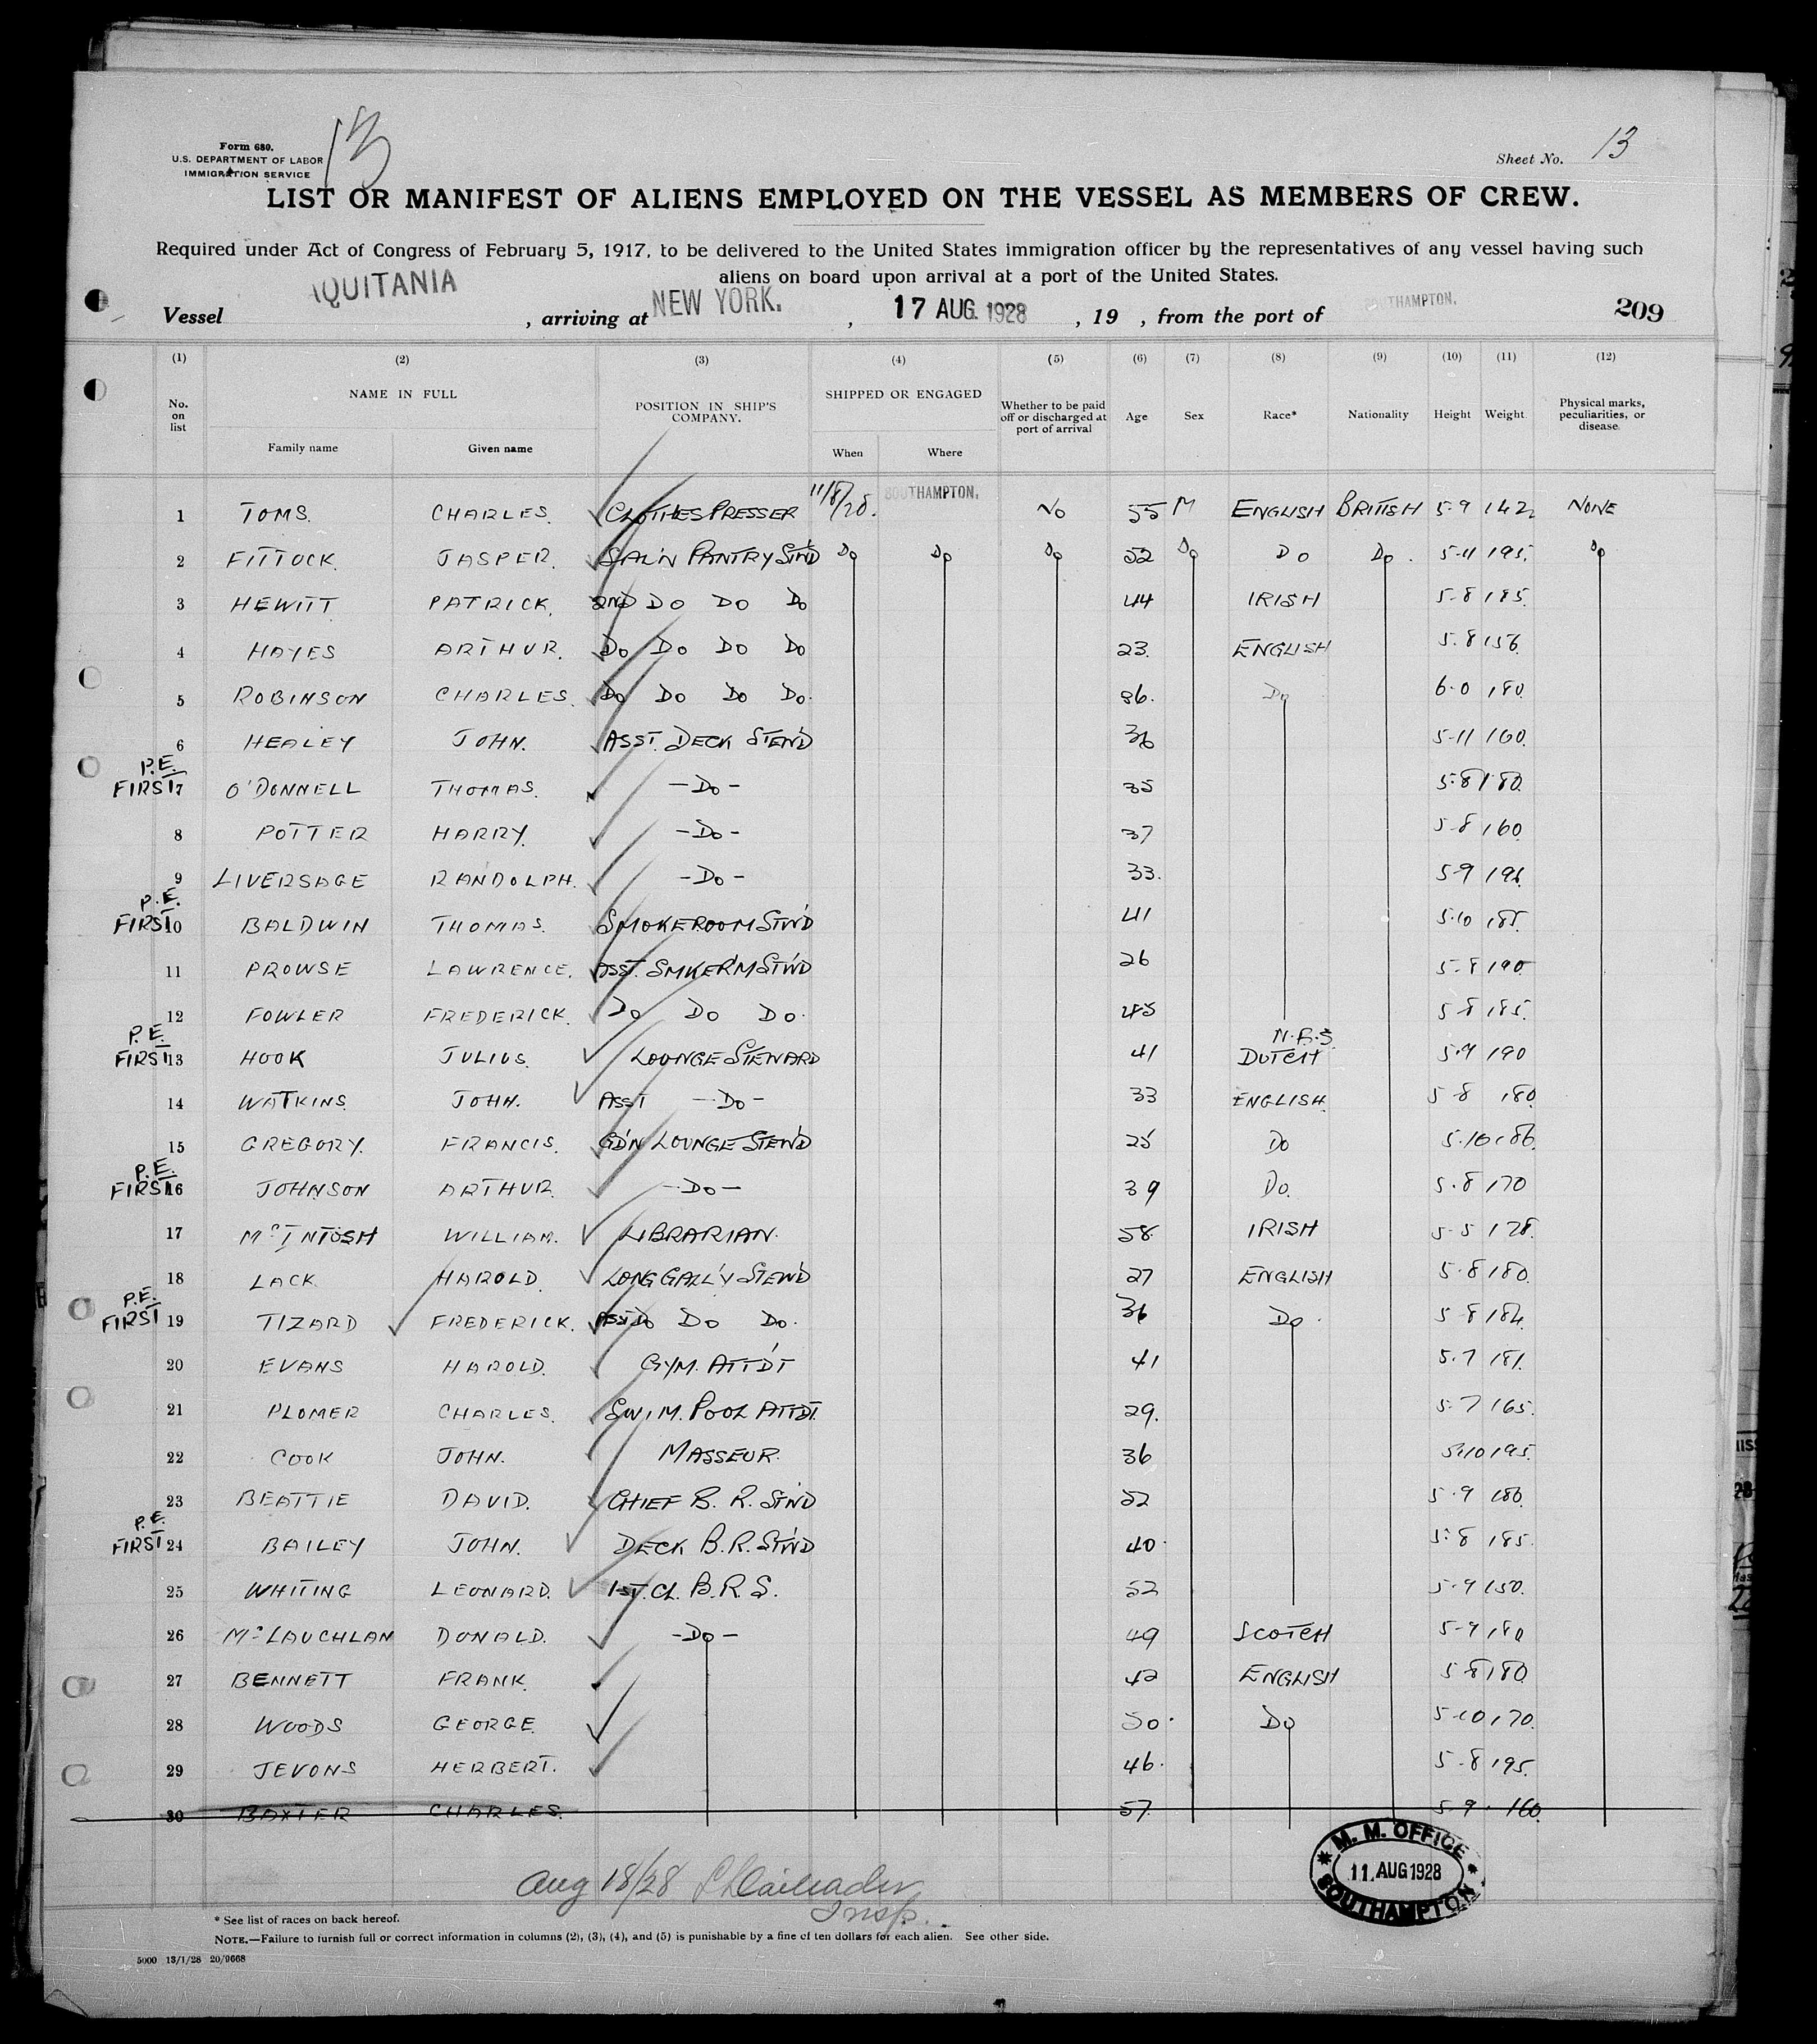 Form 680.
U.S. DEPARTMENT OF LABOR
IMMIGRATION SERVICE
13
Sheet No. 13
LIST OR MANIFEST OF ALIENS EMPLOYED ON THE VESSEL AS MEMBERS OF CREW.
Required under Act of Congress of February 5, 1917, to be delivered to the United States immigration officer by the representatives of any vessel having such
aliens on board upon arrival at a port of the United States.
Vessel AQUITANIA, arriving at NEW YORK., 17 AUG. 1928, 19 , from the port of SOUTHAMPTON. 209
(1) (2) (3) (4) (5) (6) (7) (8) (9) (10) (11) (12)
No. on list NAME IN FULL Family name Given name POSITION IN SHIP'S COMPANY. SHIPPED OR ENGAGED When Where Whether to be paid off or discharged at port of arrival Age Sex Race* Nationality Height Weight Physical marks, peculiarities, or disease.
1 TOMS. CHARLES. CLOTHES PRESSER 11/8/28. SOUTHAMPTON. No 55 M ENGLISH BRITISH 5-9 142 NONE
2 FITTOCK. JASPER. SAL'N PANTRY STW'D Do Do Do 52 Do Do Do. 5-11 195. Do
3 HEWITT PATRICK. 2ND Do Do Do 44 IRISH 5-8 185.
4 HAYES ARTHUR. Do Do Do Do 23. ENGLISH 5.8 156.
5 ROBINSON CHARLES. Do Do Do Do. 36. Do 6.0 180.
6 HEALEY JOHN. ASST. DECK STEW'D 36 5-11 160.
P.E.
FIRST 7 O'DONNELL THOMAS. -Do- 35 5.8 180.
8 POTTER HARRY. -Do- 37 5-8 160.
9 LIVERSAGE RANDOLPH. -Do- 33. 5-9 196.
P.E.
FIRST 10 BALDWIN THOMAS. SMOKEROOM STW'D 41 5.10 185.
11 PROWSE LAWRENCE. ASST. SMKER'M STW'D 26 5-8 190
12 FOWLER FREDERICK. Do Do Do. 45 5-8 185.
P.E. N.B.S.
FIRST 13 HOOK JULIUS. LOUNGE STEWARD 41 DUTCH 5.9 190
14 WATKINS. JOHN. ASST -Do- 33 ENGLISH. 5-8 180.
15 GREGORY. FRANCIS. GD'N LOUNGE STEW'D 25 Do 5.10 186.
P.E.
FIRST 16 JOHNSON ARTHUR. -Do- 39 Do. 5.8 170
17 McINTOSH WILLIAM. LIBRARIAN. 58. IRISH 5-5 128.
18 LACK HAROLD. LONG GALL'Y STEW'D 27 ENGLISH 5.8 180.
P.E.
FIRST 19 TIZARD FREDERICK. ASST Do Do Do. 36 Do. 5-8 184.
20 EVANS HAROLD. GYM. ATT'D'T 41 5.7 181.
21 PLOMER CHARLES. SWIM. POOL ATTDT. 29. 5.7 165.
22 COOK JOHN. MASSEUR. 36 5.10 195.
23 BEATTIE DAVID. CHIEF B. R. STW'D 52 5.9 180.
P.E.
FIRST 24 BAILEY JOHN. DECK B.R. STW'D 40. 5.8 185.
25 WHITING LEONARD. 1ST. CL. B.R.S. 52 5.9 150.
26 McLAUCHLAN DONALD. -Do- 49 SCOTCH 5-9 180
27 BENNETT FRANK. 42 ENGLISH 5-8 180.
28 WOODS GEORGE. 50. Do 5-10 170.
29 JEVONS HERBERT. 46. 5-8 195.
30 BAXTER CHARLES. 57. 5-9 160.
M. M. OFFICE
11. AUG 1928
SOUTHAMPTON
Aug 18/28
Insp.
* See list of races on back hereof.
NOTE.—Failure to furnish full or correct information in columns (2), (3), (4), and (5) is punishable by a fine of ten dollars for each alien. See other side.
5000 13/1/28 20/9668